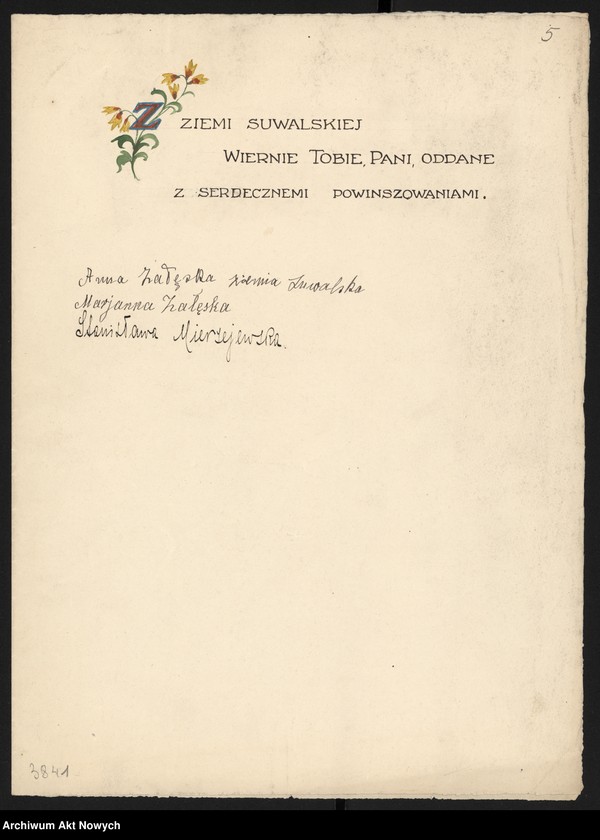 5
Z ZIEMI SUWALSKIEJ
WIERNIE TOBIE, PANI, ODDANE
Z SERDECZNEMI POWINSZOWANIAMI.
Anna Załęska ziemia Suwalska
Marjanna Załęska
Stanisława Mierzejewska.
3841
Archiwum Akt Nowych